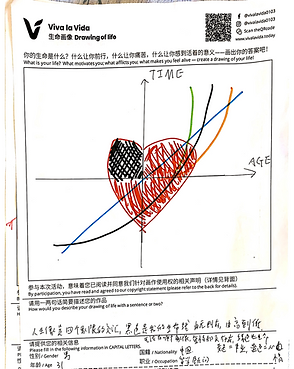 Viva la Vida
生命画像 Drawing of life
vivalavida0123
@vivalavida0123
Scan the QRcode
www.vivalavida.today
你的生命是什么？什么让你前行，什么让你痛苦，什么让你感到活着的意义——画出你的答案吧！
What is your life? What motivates you, what afflicts you, what makes you feel alive — create a drawing of your life!
TIME
AGE
参与本次活动，意味着您已阅读并同意我们针对画作使用权的相关声明（详情见背面）
By participation, you have read and agreed to our copyright statement (please refer to the back for details).
请用一两句话简要描述您的作品
How would you describe your drawing of life with sentence or two?
人生就是四个象限的交汇
请提供您的相关信息
Please fill in the following information in CAPITAL LETTERS
性别 / Gender 男
国籍 / Nationality 中国
年龄 / Age 31
职业 / Occupation